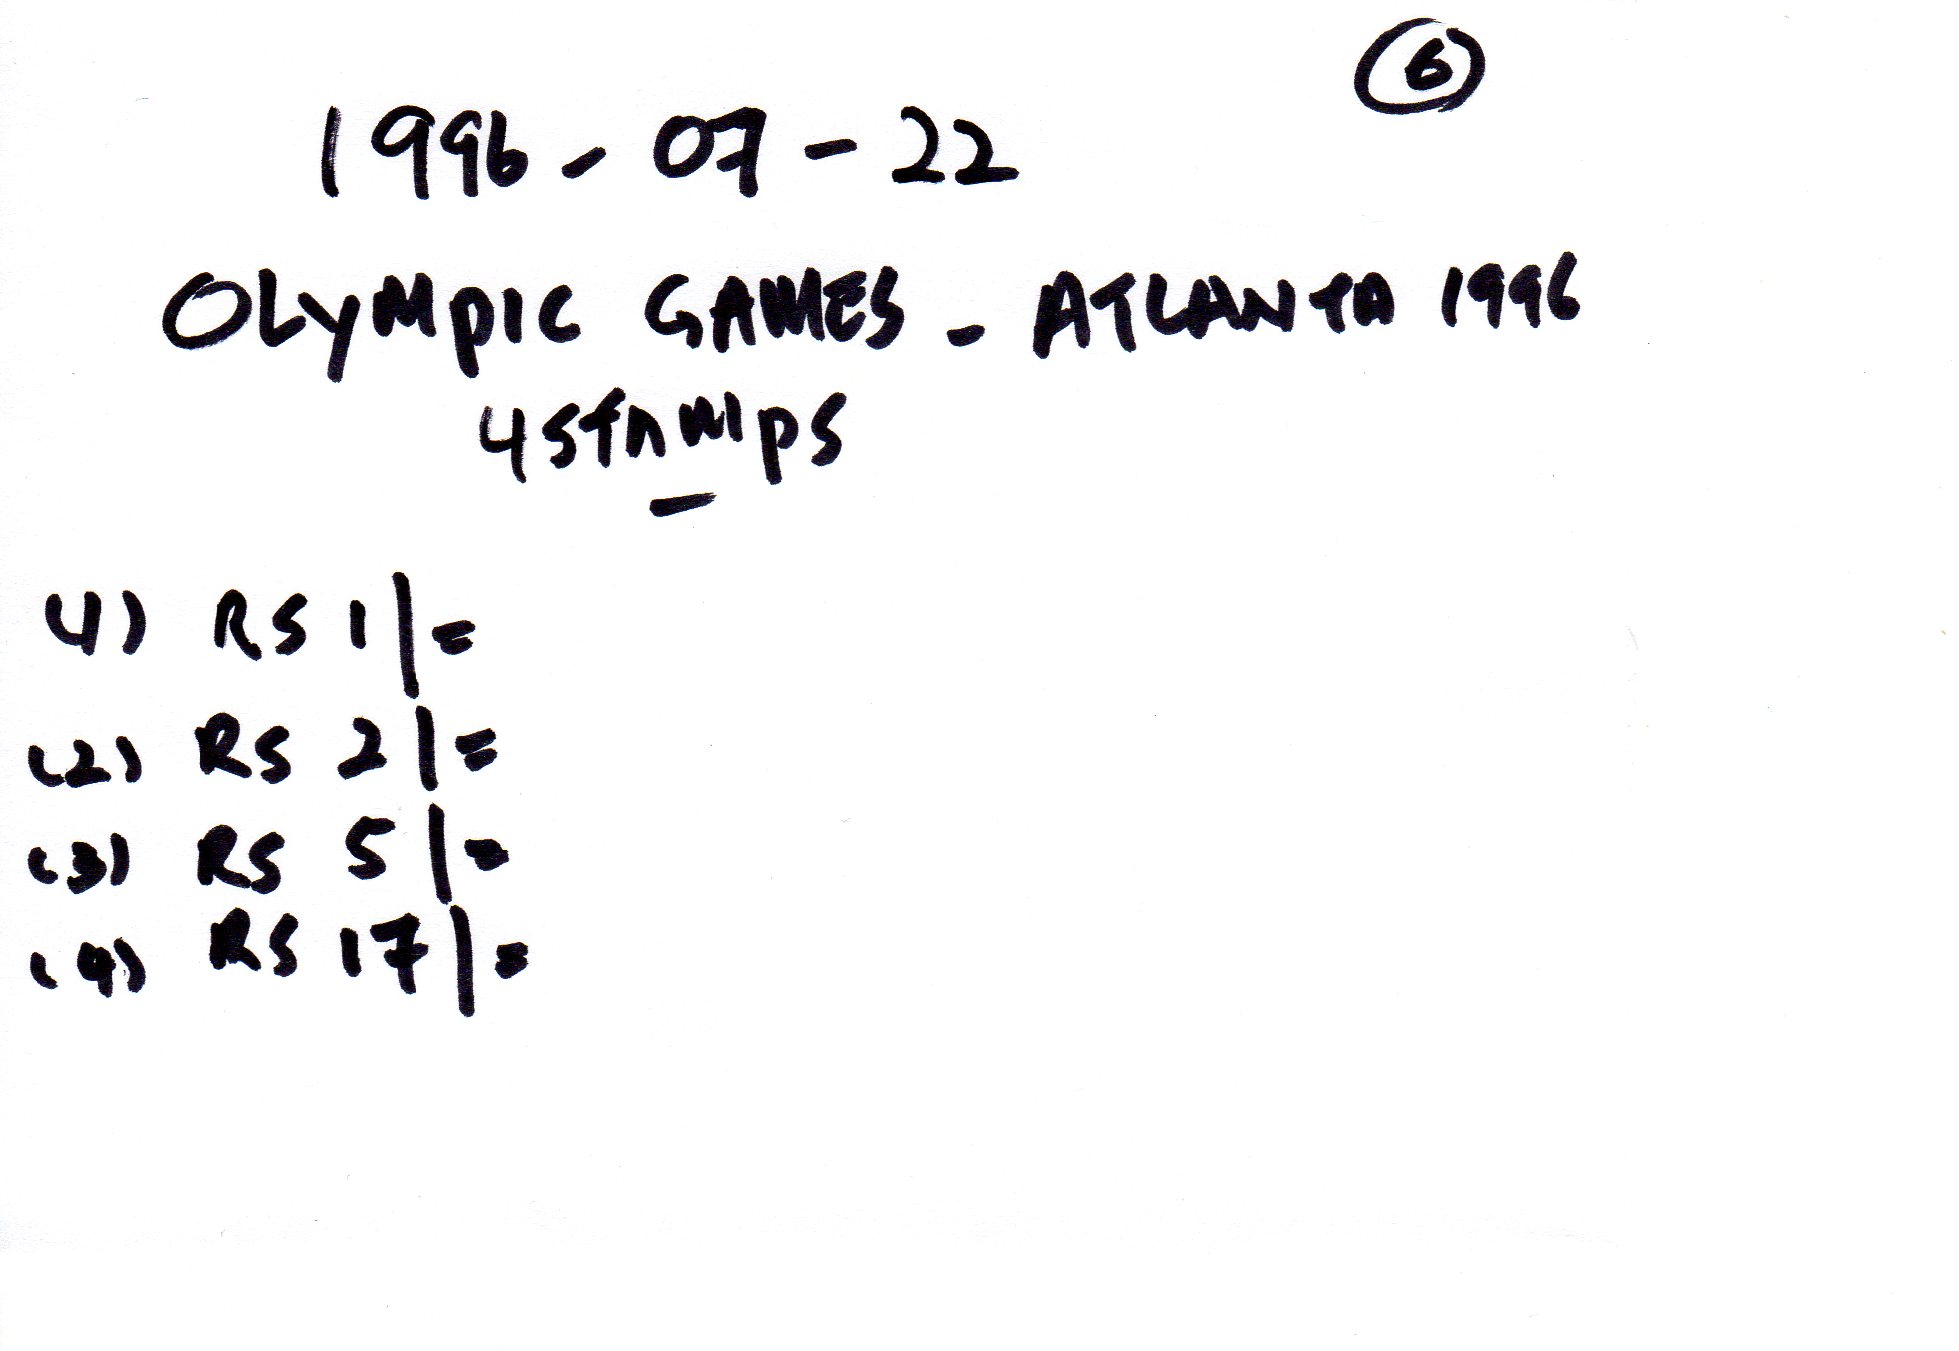 6
1996-07-22
OLYMPIC GAMES - ATLANTA 1996
4 STAMPS
(1) RS 1/=
(2) RS 2/=
(3) RS 5/=
(4) RS 17/=